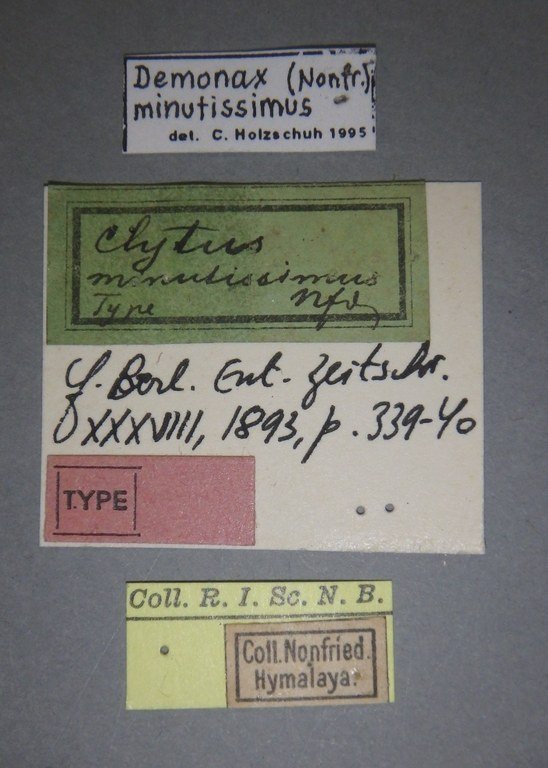 Demonax (Nonfr.)
minutissimus
det. C. Holzschuh 1995
Clytus
minutissimus
Type Nfd
f. Berl. Ent. Zeitschr.
XXXVIII, 1893, p. 339-40
TYPE
Coll. R. I. Sc. N. B.
Coll. Nonfried.
Hymalaya.